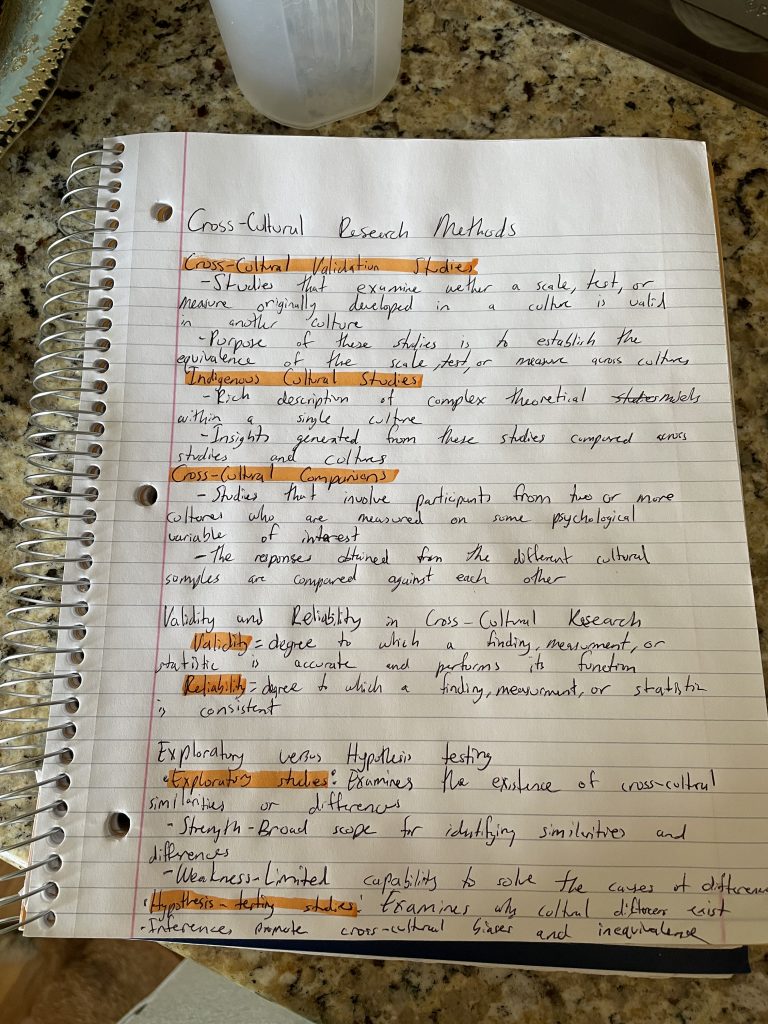 Cross-Cultural Research Methods
Cross-Cultural Validation Studies
- Studies that examine wether a scale, test, or
measure originally developed in a culture is valid
in another culture
- Purpose of these studies is to establish the
equivalence of the scale, test, or measure across cultures
Indigenous Cultural Studies
- Rich description of complex theoretical models
within a single culture
- Insights generated from these studies compared across
studies and cultures
Cross-Cultural Comparisons
- Studies that involve participants from two or more
cultures who are measured on some psychological
variable of interest
- The responses obtained from the different cultural
samples are compared against each other
Validity and Reliability in Cross-Cultural Research
Validity = degree to which a finding, measurment, or
statistic is accurate and performs its function
Reliability = degree to which a finding, measurment, or statistic
is consistent
Exploratory versus Hypothesis testing
• Exploratory studies: Examines the existence of cross-cultural
similarities or differences
- Strength - Broad scope for identifying similarities and
differences
- Weakness - Limited capability to solve the causes of difference
• Hypothesis-testing studies: Examines why cultural differences exist
- Inferences promote cross-cultural biases and inequivalence